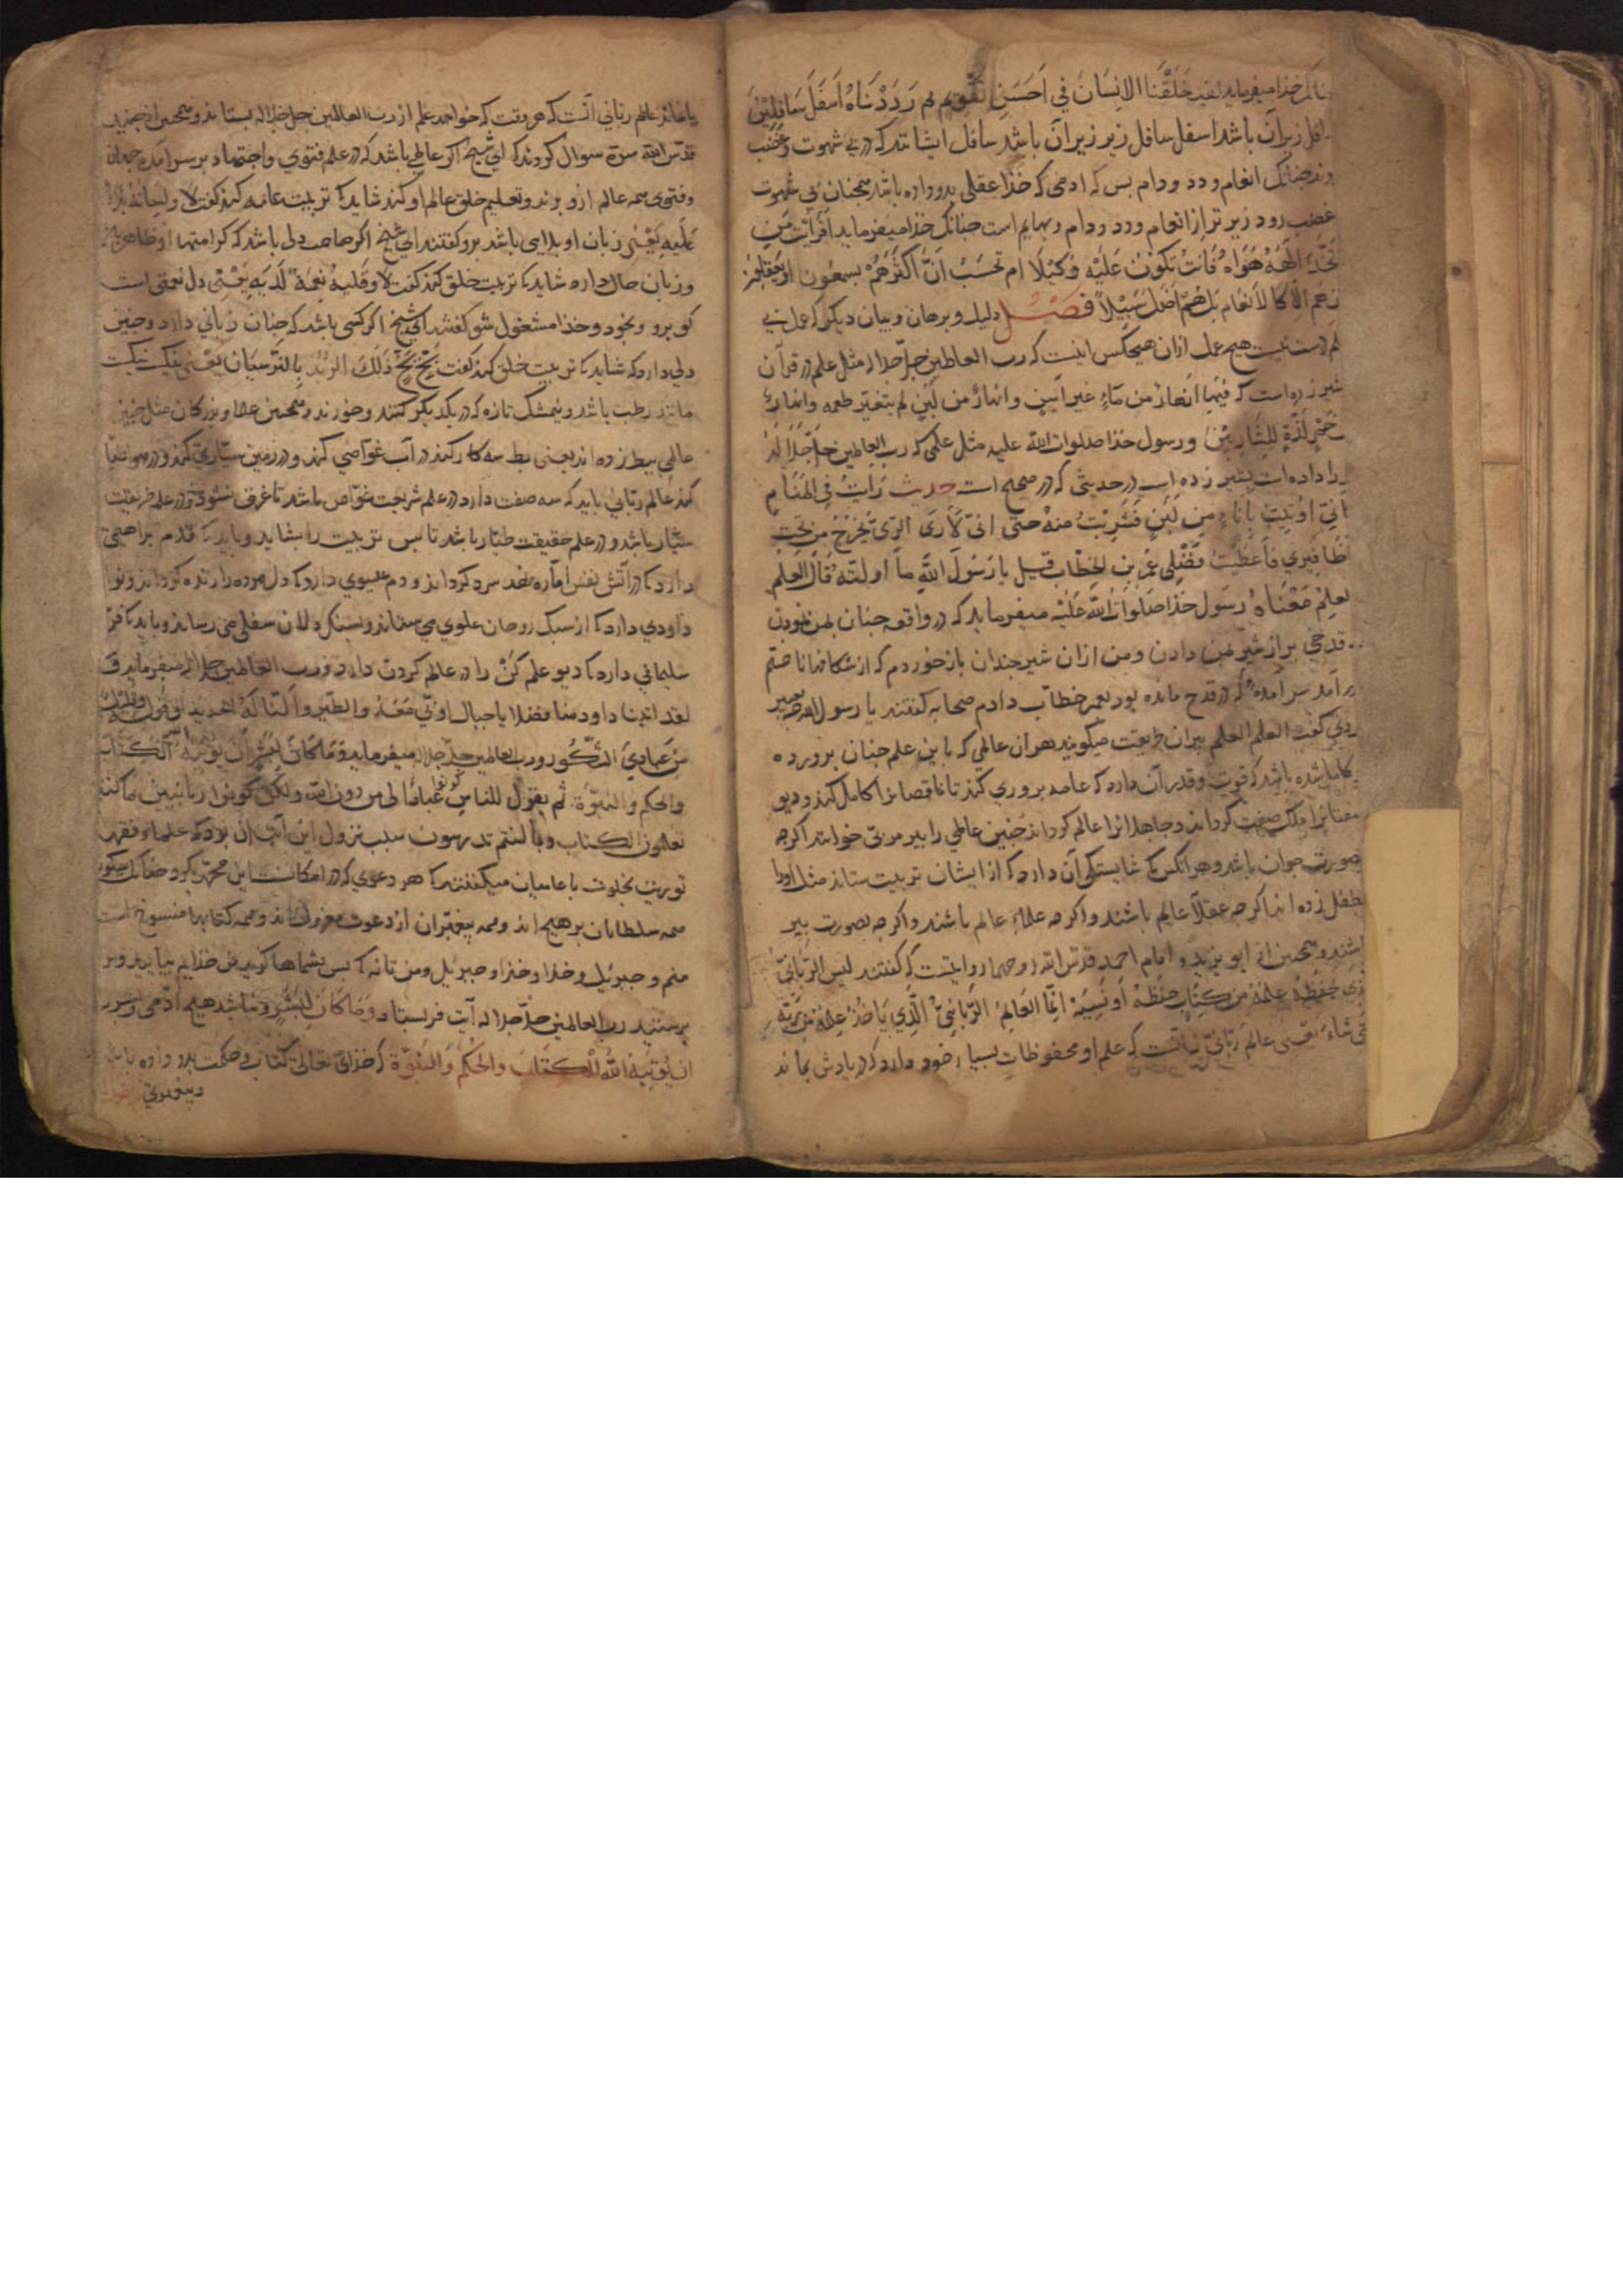 خدا میفرماید لقد خَلَقْنَا الانِسَانَ في اَحسَنِ تقویم ثم رَدَدْنَاهُ اَسفَلَ سَافِلِیْنَ
زیر آن باشد اسفل سافل زیر زیر آن باشد سافل ایشانند که در بی شهوت و غضب
انعام و دد و دام بس که ادمی که خذا عقلی بدو داده باشد همجنان بی شهوت
غضب رود زیر تر از انعام و دد و دام و بهایم است جنانک خذا میفرماید اَفَرَأیْتَ مَنِ
اِلَهَهُ هَوَاهُ فَاَنتَ تَکُونُ عَلَیْهِ وَکیْلًا ام تَحسَبُ انَّ اَکثَرَهُمْ یسمعُون او یَعقلون
هُم الّا کا لاَنعَام بَل هُمْ اَضَلُ سَبِیْلاً فصـــل دلیل و برهان و بیان دیکر که عمل بی
علم درست نیست هیج عمل ازان هیجکس اینست که رب العالمین جلّ جلاله مثل علم در قرآن
بشیر زده است که فیْهَا اَنهَارٌ من مَاءٍ غیر آسِنٍ و انهارٌ من لَبَنٍ لم یتغیّر طعمه وانهارٌ
خَمْرٍ لَذّةٍ لِلشَّارِبِیْنَ و رسول خذا صلوات الله علیه مثل علمی که رب العالمین جلّ جلاله
را داده است بشیر زده است در حدیثی که در صحیح است حدیث رَاَیتُ فی المَنَامِ
اَنِّیَ اُوتِیتُ بِاِنَاءٍ مِن لَبَنٍ فَشَرِبْتُ منهُ حتّی انّی لَاَرَیَ الرّیَّ یَخْرُجُ مِن تَحتِ
اَظَافِیْرِي فَاَعطَیْتُ فَضْلِی عُمَرَ بن الخطّاب قیل یا رَسُولَ اللهِ مَا اَولتَه قَالَ العِلم
العلِم مَعْنَاهُ رسُول خذا صَلَواتُ اللهُ عَلَیْهِ میفرماید که در واقعه جنان بمن نمودن
قدحی بر از شیر بمن دادن و من ازان شیر جندان باز خوردم که از شکافها ناخنم
بر آمد سر آمده که در قدح مانده بود بعمر خطّاب دادم صحابه کفتند یا رسول الله تعبیر
کردی کفت العلم العلم بیران طریقت میکویند هر ان عالمی که باین علم جنان برورده
کامل شده باشد که قوت و قدر آن دارد که عامه بروری کند تا ناقصانرا کامل کند و دیو
صفتانرا ملک صفت کرداند و جاهلانرا عالم کرداند جنین عالمی را بیر مربّی خوانند اکرجه
بصورت جوان باشد و هر آنکس که شایستکی آن دارد که از ایشان تربیت ستاند مثل اورا
بطفل زده اند اکرجه عقلاَ عالم باشند و اکرجه علماء عالم باشند و اکرجه بصورت بیر
باشند و همجنین از ابو یزید و امام احمد قدس الله روحهما روایتست که کفتند لیس الرّبّانیّ
الذی حَفِظَهُ عِلمَهُ من کِتَابٍ حَفِظَهُ اَو نَسِیَهُ انَّمَا العَالِمُ الرّبّانِیُّ الَّذِي یَاخذُ عِلمَهُ مِن رَبّهِ
مَتی شاءَ یعنی عالم رَبّانیّ نه آنست که علم او محفوظات بسیار خود دارد که در یادش بماند
یا نماند عالم ربّانی آنست که هر وقت که خواهد علم از رب العالمین جل جلاله بستاند و همجنین از جنید
قدّس الله سرّه سوال کردند که اي شیخ اکر عالمی باشد که در علم فتوي و اجتهاد بر سر آمده جهان
و فتوی همه عالم ازو برند و تعلیم خلق عالم او کند شاید که تربیت عامه کند کفت لا و لِسَانُهُ بلاءٌ
عَلَیهِ یَعْنی زبان او بلایی باشد برو کفتند اي شیخ اکر صاحب دل باشد که کرامتها او ظاهر باشد
و زبان حال دارد شاید که تربیت خلق کند کفت لا و قَلبهُ نِعمَةٌ لَدَیهِ یَعْنی دل نعمتی است
کو برو و بخود و خذا مشغول شو کفتند اي شیخ اکر کسی باشد که جنان زبانی دارد و جنین
دلی دارد که شاید که تربیت خلق کند کفت بَخٍ بَخٍ ذَلکَ الزُّبْدُ بِالنّرسِیَان یعنی نیک نیکست
مانند رطب باشد و نیمشک تازه که در یکدیکر کنند و خورند و همجنین علما و بزرکان مثل جنین
عالمی ببط زده اند یعنی بط سه کار کند در آب غوّاصي کند و در زمین سیّاری کند و در هوا طیّاری
کند عالم ربّانی باید که سه صفت دارد در علم شریعت غوّاص باشد تا غرق نشود و در علم طریقت
سیّار باشد و در علم حقیقت طیّار باشد تا بس تربیت را بشاید و باید که قدم براهیمی
دارد که در آتش نفس امّاره نفس سرد کرداند و دم عیسوي دارد که دل مرده را زنده کرداند و نوا
داودي دارد که از سبک روحان علوي می ستاند و بسنکدلان سفلی می رساند و باید که فرّ
سلیمانی دارد که دیو علم کُن را در عالم کردن دارد و رب العالمین جلّ جلاله میفرماید وَ
لقد اتینا داود منا فضلا یا جبال اوّبی مَعَهُ والطّیر و اَلَنّا لَهُ الحدید او قوله وَ قَلِیلٌ
مِنْ عِبَادِيَ الشّکُور و رب العالمین جلّ جلاله میفرماید وَ مَا کَانَ لِبَشَرٍ اَن یُوتیهُ الله الکتاب
والحکم والنبوّة ثم یقول للناس کونوا عبادًا لی من دون الله ولکن کونوا ربانیین بما کنتم
تعلمون الکتاب وبما کنتم تدرسون سبب نزول این آیت آن بود که علماء فقهاء
توریت بخلوت با عامیان میکفتند که هر دعوي که در امکانست این محمّد بکرد جنانک میکوید
همه سلطانان بر هیج اند و همه پیغمبران از دعوت معزول اند و همه کتابها منسوخ است
منم و جبرئیل و خذا و خذا و جبرئیل و من تا نه که بس بشماها کوید من خذایم بیایید و بر
برستید رب العالمین جلّ جلاله آیت فرستاد وَ مَا کَانَ لِبَشَرٍ و نباشد هیج آدمی و بشر
ان یُوتِیَهُ اللهُ الْکِتَابَ والحُکمَ وَالنُبُوّةَ که خذای تعالی کتاب و حکمت بدو داده باشد
و پیغمبري